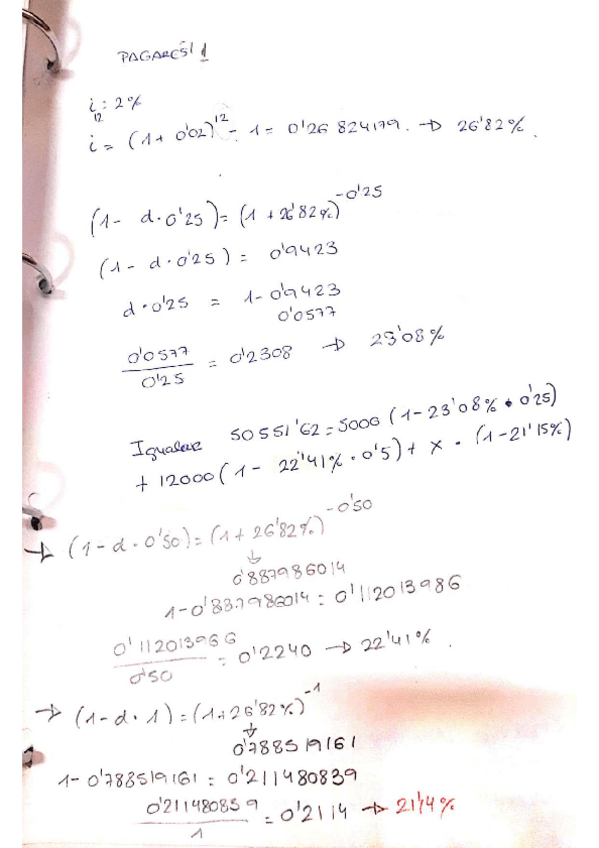 PAGARÉS 1
i : 2%
12
i = (1 + 0'02)^12 - 1 = 0'26 824179. → 26'82%.
(1 - d · 0'25) = (1 + 26'82%)^-0'25
(1 - d · 0'25) = 0'9423
d · 0'25 = 1 - 0'9423
0'0577
0'0577 / 0'25 = 0'2308 → 23'08%
Igualar 50551'62 = 5000 (1 - 23'08% · 0'25)
+ 12000 (1 - 22'41% · 0'5) + x · (1 - 21'15%)
→ (1 - d · 0'50) = (1 + 26'82%)^-0'50
↓
0'887986014
1 - 0'887986014 = 0'112013986
0'112013966 / 0'50 = 0'2240 → 22'41%.
→ (1 - d · 1) = (1 + 26'82%)^-1
↓
0'788519161
1 - 0'788519161 = 0'211480839
0'211480859 / 1 = 0'2114 → 21'14%